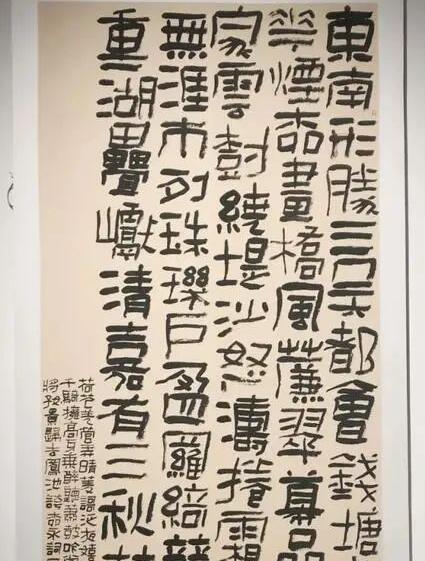 東南形勝三吳都會錢塘
華煙柳畫橋風簾翠幕
家雲樹繞堤沙怒濤捲霜
無涯市列珠璣戶盈羅綺競
重湖疊巘清嘉有三秋
荷花羌管弄晴菱謳泛夜嬉
千騎擁高牙乘醉聽簫鼓吟
將好景歸去鳳池誇柳永詞